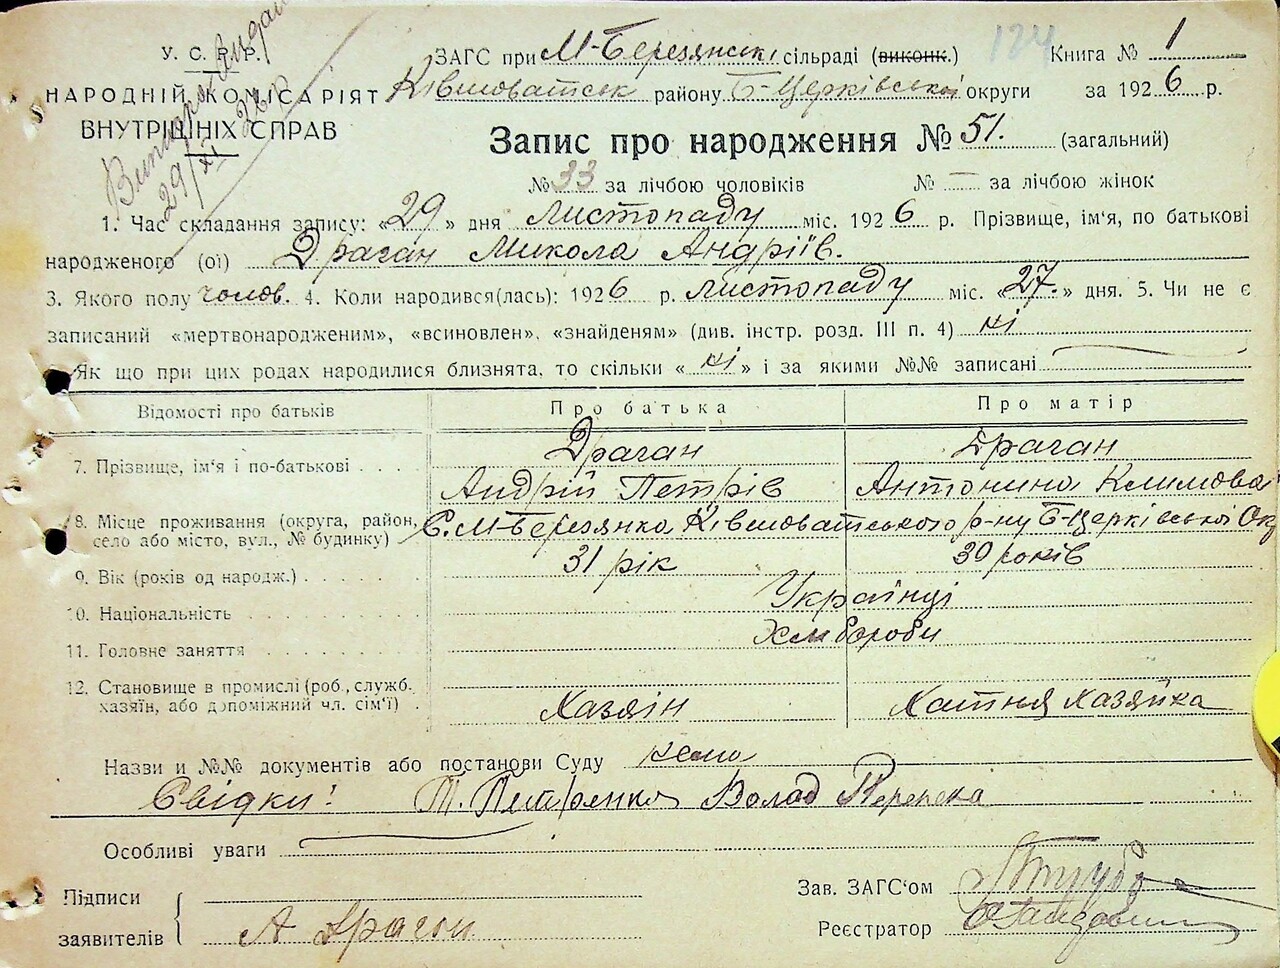 У. С. Р. Р.
НАРОДНІЙ КОМІСАРІЯТ
ВНУТРІШНІХ СПРАВ
29/XI 26 р
ЗАГС при М-Березянські сільраді (виконк.)
124
Книга № 1
Ківшоватськ району Б-Церківської округи за 1926 р.
Запис про народження № 51. (загальний)
№ 33 за лічбою чоловіків № — за лічбою жінок
1. Час складання запису: «29» дня листопаду міс. 1926 р. Прізвище, ім'я, по батькові
народженого (ої) Драган Микола Андріїв.
3. Якого полу чолов. 4. Коли народився(лась): 1926 р. листопаду міс. «27.» дня. 5. Чи не є
записаний «мертвонародженим», «всиновлен», «знайденям» (див. інстр. розд. III п. 4) ні
Як що при цих родах народилися близнята, то скільки «ні» і за якими №№ записані
Відомості про батьків Про батька Про матір
7. Прізвище, ім'я і по-батькові Драган Андрій Петрів Драган Антонина Климова
8. Місце проживання (округа, район, село або місто, вул., № будинку) С. М-Березянка Ківшоватського р-ну Б-Церківської Ок
9. Вік (років од народж.) 31 рік 30 років
10. Національність Українці
11. Головне заняття Хлібороби
12. Становище в промислі (роб., служб. хазяїн, або допоміжний чл. сім'ї) Хазяїн Хатня хазяйка
Назви и №№ документів або постанови Суду нема
Свідки: Т. Петренко Волод
Особливі уваги
Підписи
заявителів А Драган
Зав. ЗАГС'ом
Реєстратор